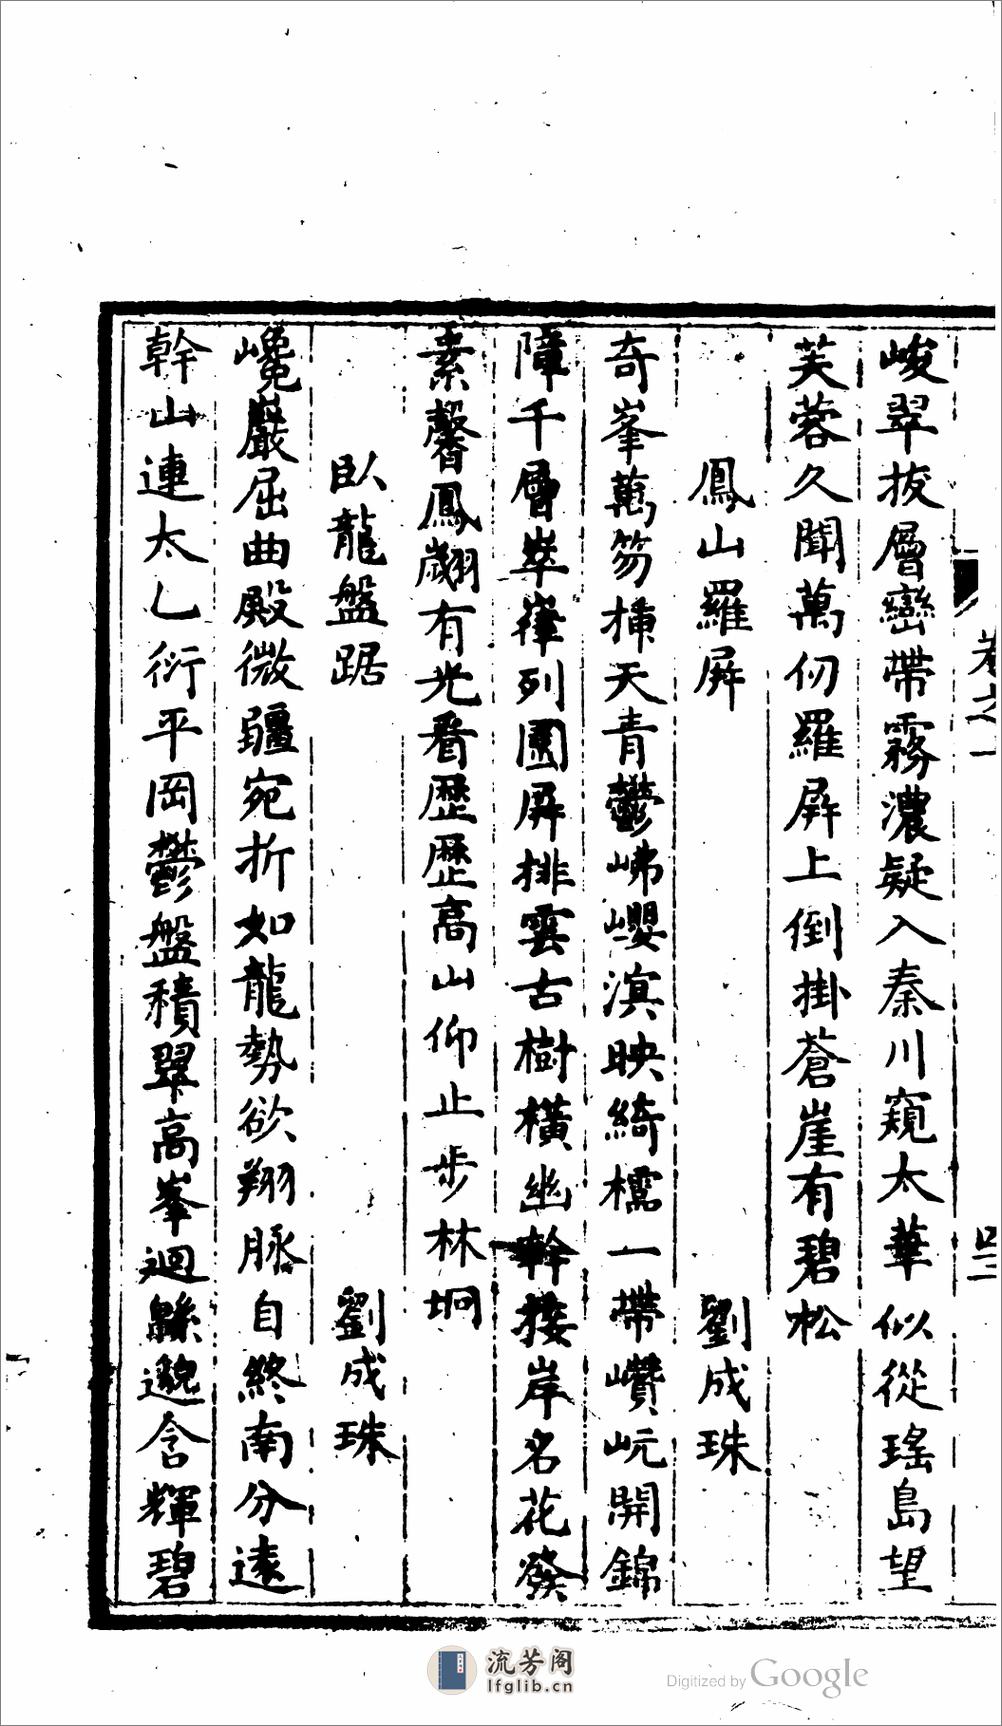 卷之一
四二
峻翠拔層巒帶霧濃疑入秦川窺太華似從瑤島望
芙蓉久聞萬仞羅屏上倒掛蒼崖有碧松
鳳山羅屏
劉成珠
奇峯萬笏插天青鬱岪巊溟映綺櫺一帶巑岏開錦
障千層崒嵂列圍屏排雲古樹橫幽幹接岸名花發
素馨鳳翽有光看歷歷高山仰止步林坰
臥龍盤踞
劉成珠
巉巖屈曲殿微疆宛折如龍勢欲翔脈自終南分遠
幹山連太乙衍平岡鬱盤積翠高峯迴緜邈含輝碧
流芳阁
lfglib.cn
Digitized by Google